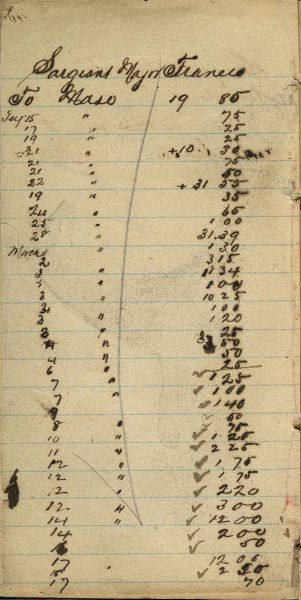 Sargeant Major Francis
To Maso 19 85
Feby 15 " 75
17 " 25
19 " 25
21 " +10 30
21 " 75
21 " 50
22 " +31 55
19 " 35
24 " 65
25 " 1 00
28 " 31.39
March " 1 30
2 " 3 15
3 " 11 34
3 " 1 00
3 " 10 25
3 " 1 00
3 " 1 20
3 " 25
4 " 50
4 " 50
6 " 25
7 " 1 25
7 " 1 00
" 1 40
9 50
8 " 75
10 " 1 25
11 " 2 25
12 " 1 75
12 " 1 75
12 " 2 20
12 " 3 00
14 " 12 00
14 2 00
16 50
17 " 12 06
2 50
17 70